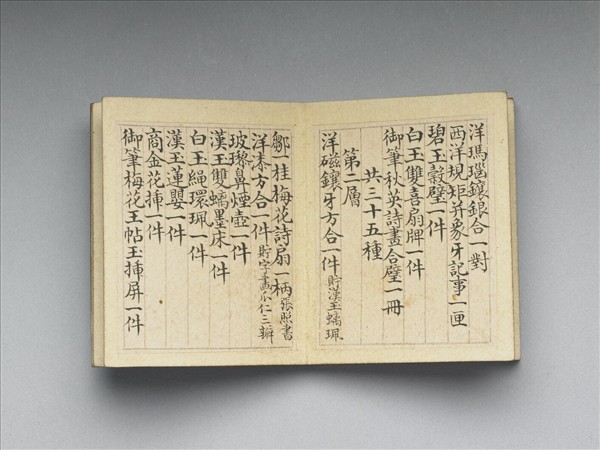 洋瑪瑙鑲銀合一對
西洋規矩并象牙記事一匣
碧玉穀璧一件
白玉雙喜扇牌一件
御筆秋英詩畫合璧一冊
共三十五種
第二層
洋磁鑲牙方合一件 貯漢玉螭珮
鄒一桂梅花詩扇一柄 張照書
洋漆方合一件 貯字畫瓜仁三瓣
玻瓈鼻煙壺一件
漢玉雙螭墨床一件
白玉繩環珮一件
漢玉蓮嬰一件
商金花揷一件
御筆梅花玉帖玉揷屏一件